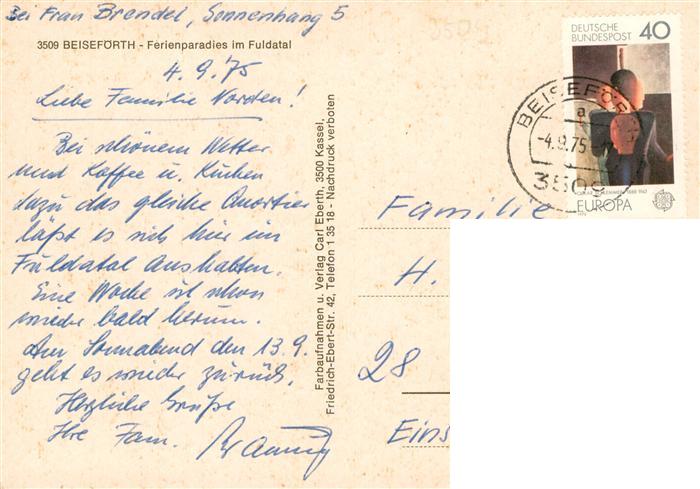 Bei Frau Brendel, Sonnenhang 5
3509 BEISEFÖRTH - Ferienparadies im Fuldatal
4.9.'75
Liebe Familie Norden!
Bei schönem Wetter
und Kaffee u. Kuchen
dazu das gleiche Quartier
läßt es sich hier im
Fuldatal Aushalten.
Eine Woche ist schon
wieder bald herum.
Am Sonnabend den 13.9.
geht es wieder zurück.
Herzliche Grüße
Ihre Fam.
Farbaufnahmen u. Verlag Carl Eberth, 3500 Kassel,
Friedrich-Ebert-Str. 42, Telefon 1 35 18 - Nachdruck verboten
DEUTSCHE
BUNDESPOST 40
EUROPA
BEISEFÖR
a
-4.9.75
3509
Familie
H.
28
Eins